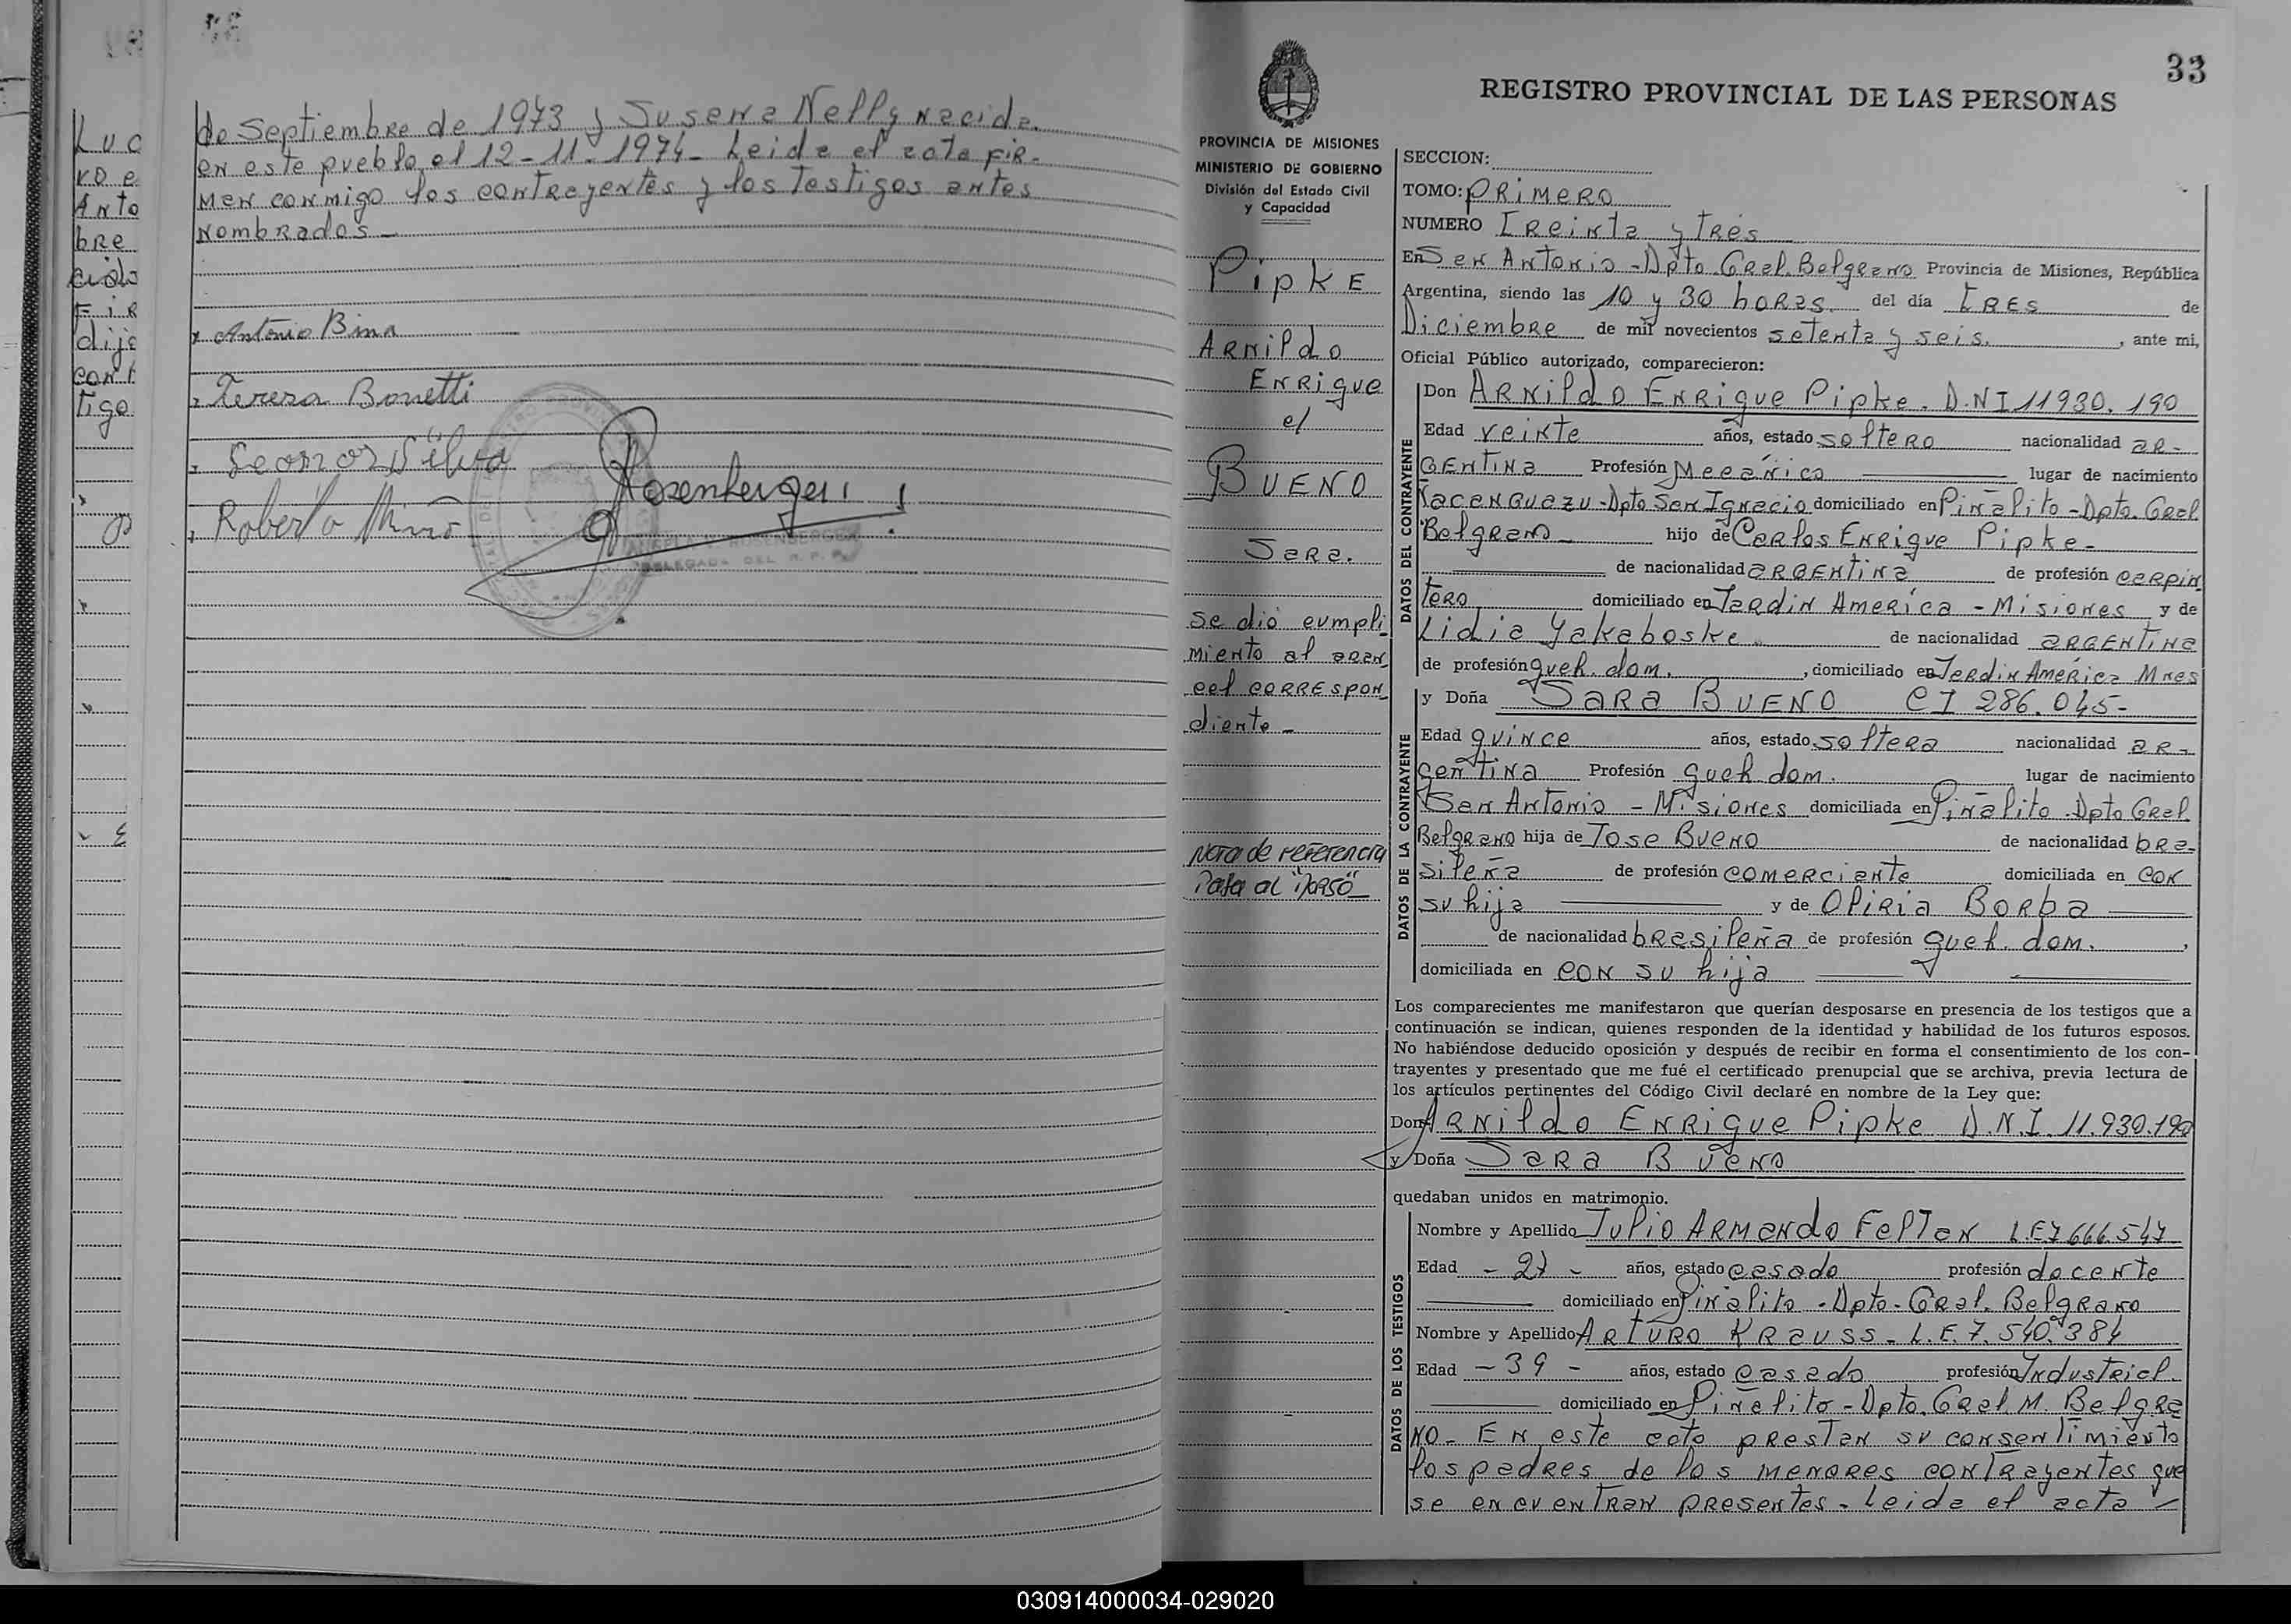 de Septiembre de 1973 y Susana Nelly nacida
en este pueblo el 12-11-1974- Leida el acta fir-
man conmigo los contrayentes y los testigos antes
nombrados-
Antonio Bima
Teresa Bonetti
Leonor Silva
Roberto Miño
Rosenberger
ROSENBERGER
DELEGADA DEL R. P. P.
Luc
Anto
bre
dijo
tigo
33
REGISTRO PROVINCIAL DE LAS PERSONAS
PROVINCIA DE MISIONES
MINISTERIO DE GOBIERNO
División del Estado Civil
y Capacidad
Pipke
Arnildo
Enrique
c/
BUENO
Sara.
Se dió cumpli-
miento al aran-
cel correspon-
diente-
Nota de referencia
Pasa al "Dorso"
SECCION:
TOMO: PRIMERO
NUMERO Treinta y Tres
En San Antonio-Dpto. Gral. Belgrano Provincia de Misiones, República
Argentina, siendo las 10 y 30 horas. del día TRES de
Diciembre de mil novecientos setenta y seis. , ante mi,
Oficial Público autorizado, comparecieron:
DATOS DEL CONTRAYENTE
Don Arnildo Enrique Pipke. D.N I 11930.190
Edad veinte años, estado soltero nacionalidad ar-
gentina Profesión Mecánico lugar de nacimiento
Ñacanguazu-Dpto San Ignacio domiciliado en Piñalito-Dpto. Gral
Belgrano- hijo de Carlos Enrique Pipke-
de nacionalidad argentina de profesión carpin
tero domiciliado en Jardin America - Misiones y de
Lidia Yakaboske de nacionalidad argentina
de profesión queh. dom. , domiciliado en Jardin América Mnes
DATOS DE LA CONTRAYENTE
y Doña SARA BUENO CI 286.045-
Edad quince años, estado soltera nacionalidad ar-
gentina Profesión queh dom. lugar de nacimiento
San Antonio - Misiones domiciliada en Piñalito-Dpto Gral
Belgrano hija de Jose Bueno de nacionalidad bra-
sileña de profesión comerciante domiciliada en con
su hija y de Oliria Borba
de nacionalidad brasileña de profesión queh. dom. ,
domiciliada en con su hija
Los comparecientes me manifestaron que querían desposarse en presencia de los testigos que a
continuación se indican, quienes responden de la identidad y habilidad de los futuros esposos.
No habiéndose deducido oposición y después de recibir en forma el consentimiento de los con-
trayentes y presentado que me fué el certificado prenupcial que se archiva, previa lectura de
los artículos pertinentes del Código Civil declaré en nombre de la Ley que:
Don Arnildo Enrique Pipke D.N.I. 11.930.190
y Doña Sara Bueno
quedaban unidos en matrimonio.
DATOS DE LOS TESTIGOS
Nombre y Apellido Julio Armando Feltan L.E 7.666.547
Edad - 27 - años, estado casado profesión docente
domiciliado en Piñalito-Dpto-Gral. Belgrano
Nombre y Apellido Arturo Krauss-L.E.7.540.384
Edad - 39 - años, estado casado profesión Industrial.
domiciliado en Piñalito-Dpto. Gral M. Belgra
no- En este acto prestan su consentimiento
los padres de los menores contrayentes que
se encuentran presentes- Leida el acta -
030914000034-029020